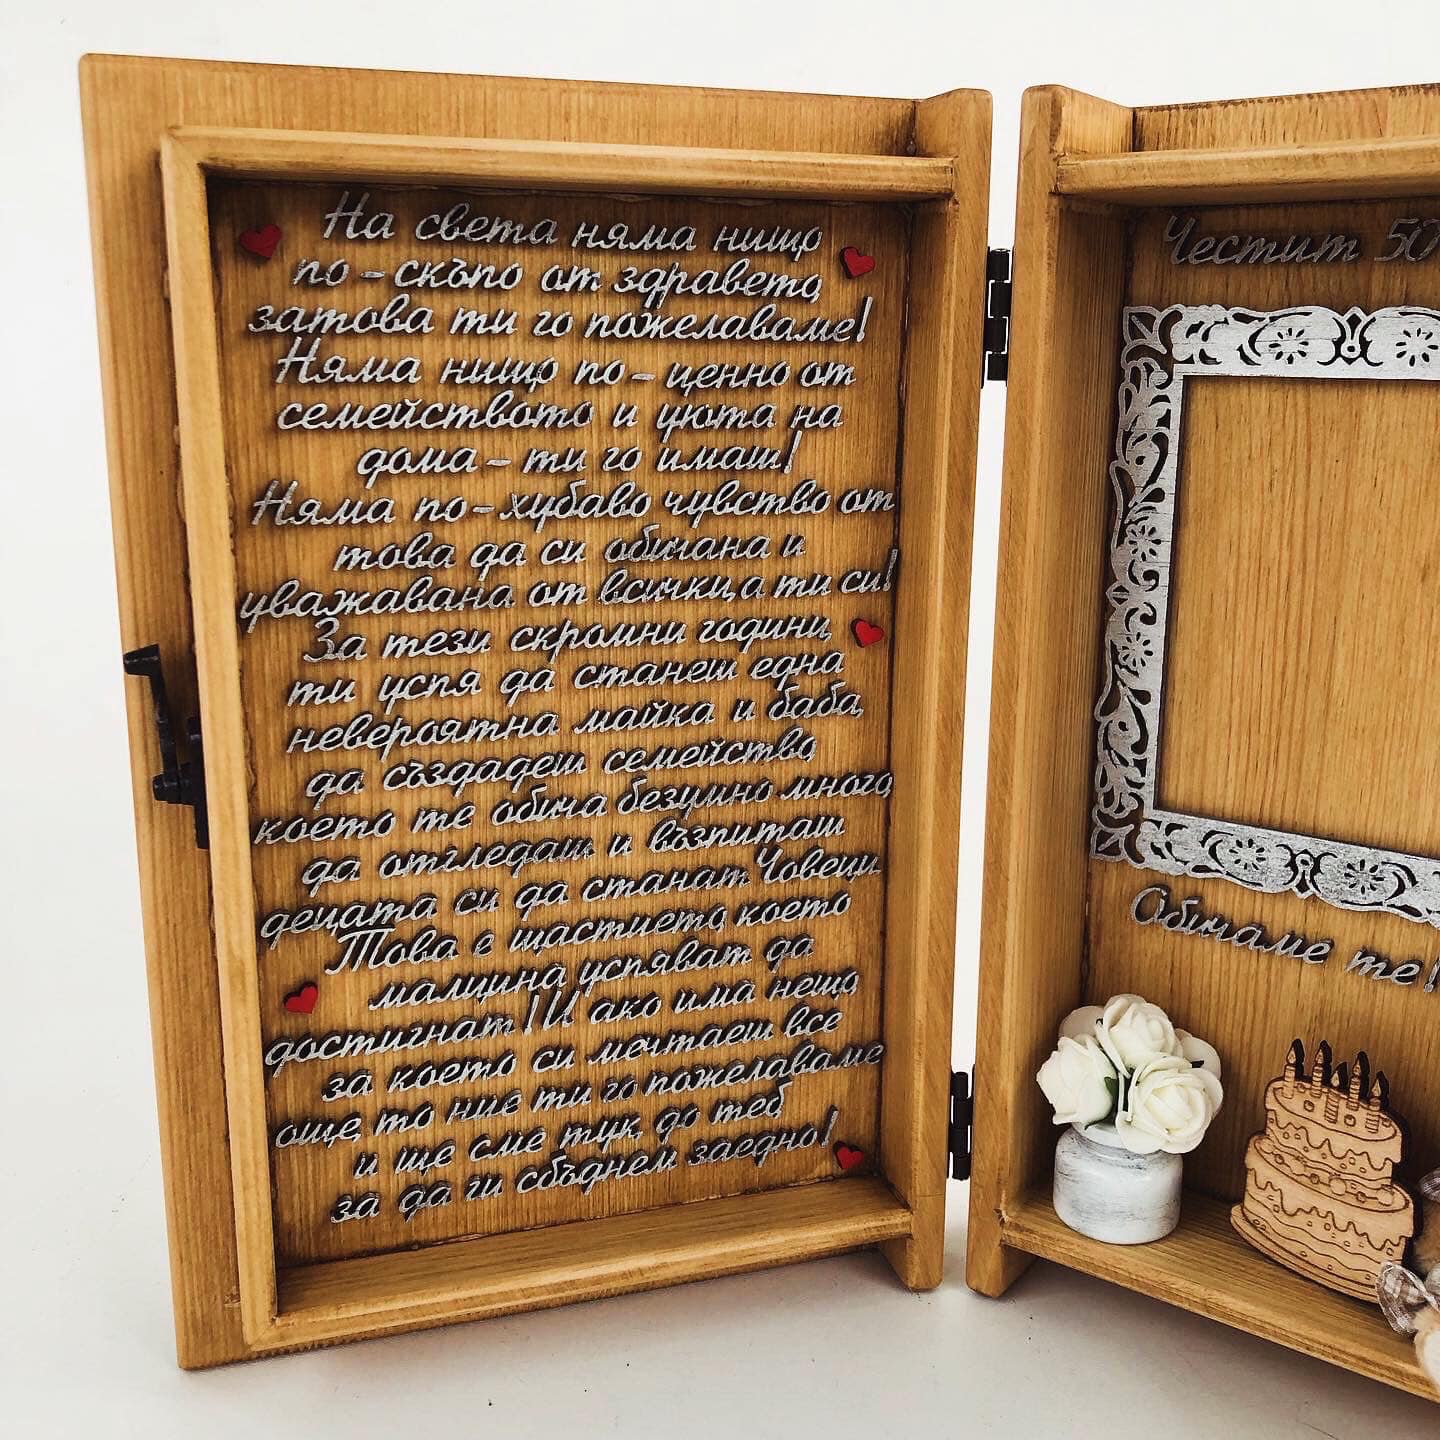 На света няма нищо
по-скъпо от здравето,
затова ти го пожелаваме!
Няма нищо по-ценно от
семейството и уюта на
дома-ти го имаш!
Няма по-хубаво чувство от
това да си обичана и
уважавана от всички,а ти си!
За тези скромни години,
ти успя да станеш една
невероятна майка и баба,
да създадеш семейство,
което те обича безумно много,
да отгледаш и възпиташ
децата си да станат Човеци.
Това е щастието,което
малцина успяват да
достигнат!И ако има нещо,
за което си мечтаеш все
още,то ние ти го пожелаваме
и ще сме тук, до теб,
за да ги сбъднем заедно!
Честит 50
Обичаме те!